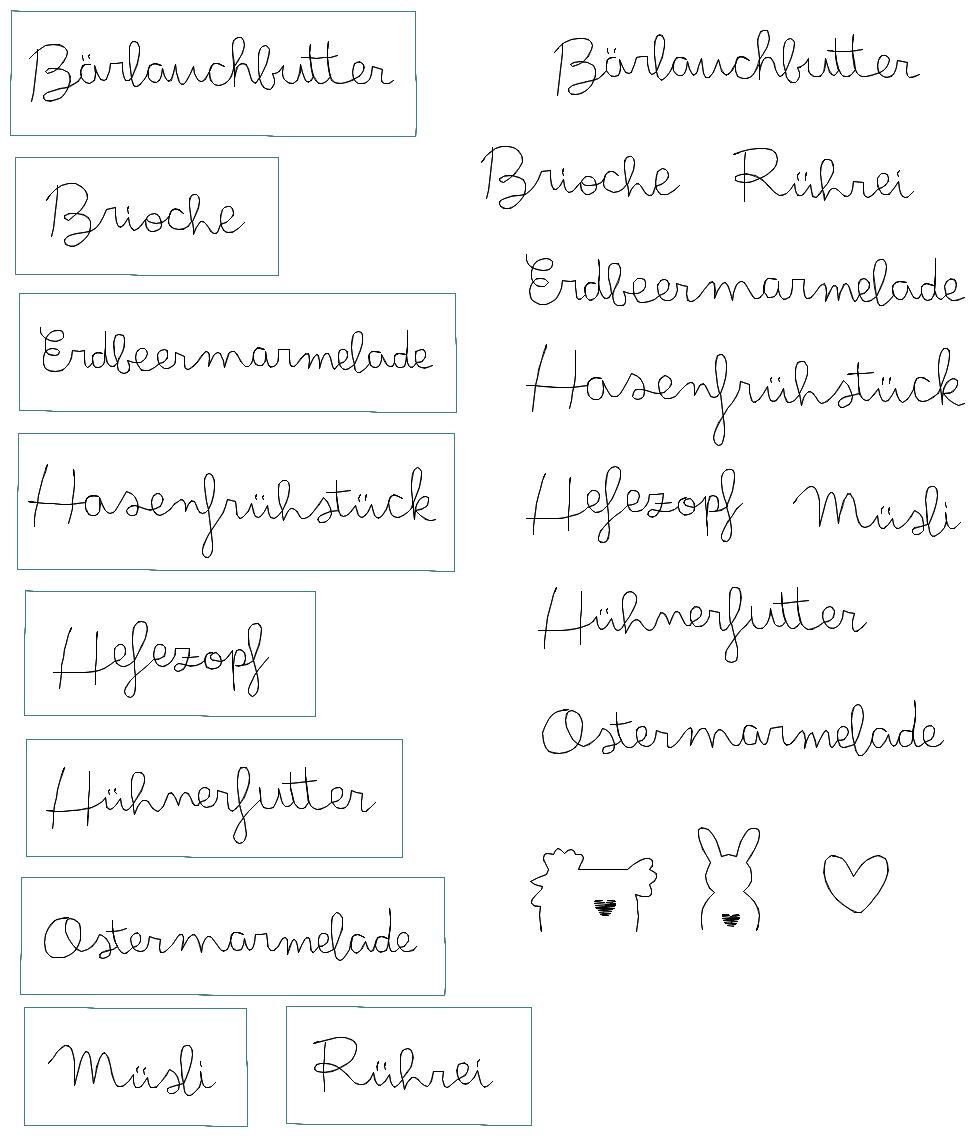 Bärlauchbutter
Brioche
Erdbeermarmelade
Hasenfrühstück
Hefezopf
Hühnerfutter
Ostermarmelade
Müsli Rührei
Bärlauchbutter
Brioche Rührei
Erdbeermarmelade
Hasenfrühstück
Hefezopf Müsli
Hühnerfutter
Ostermarmelade